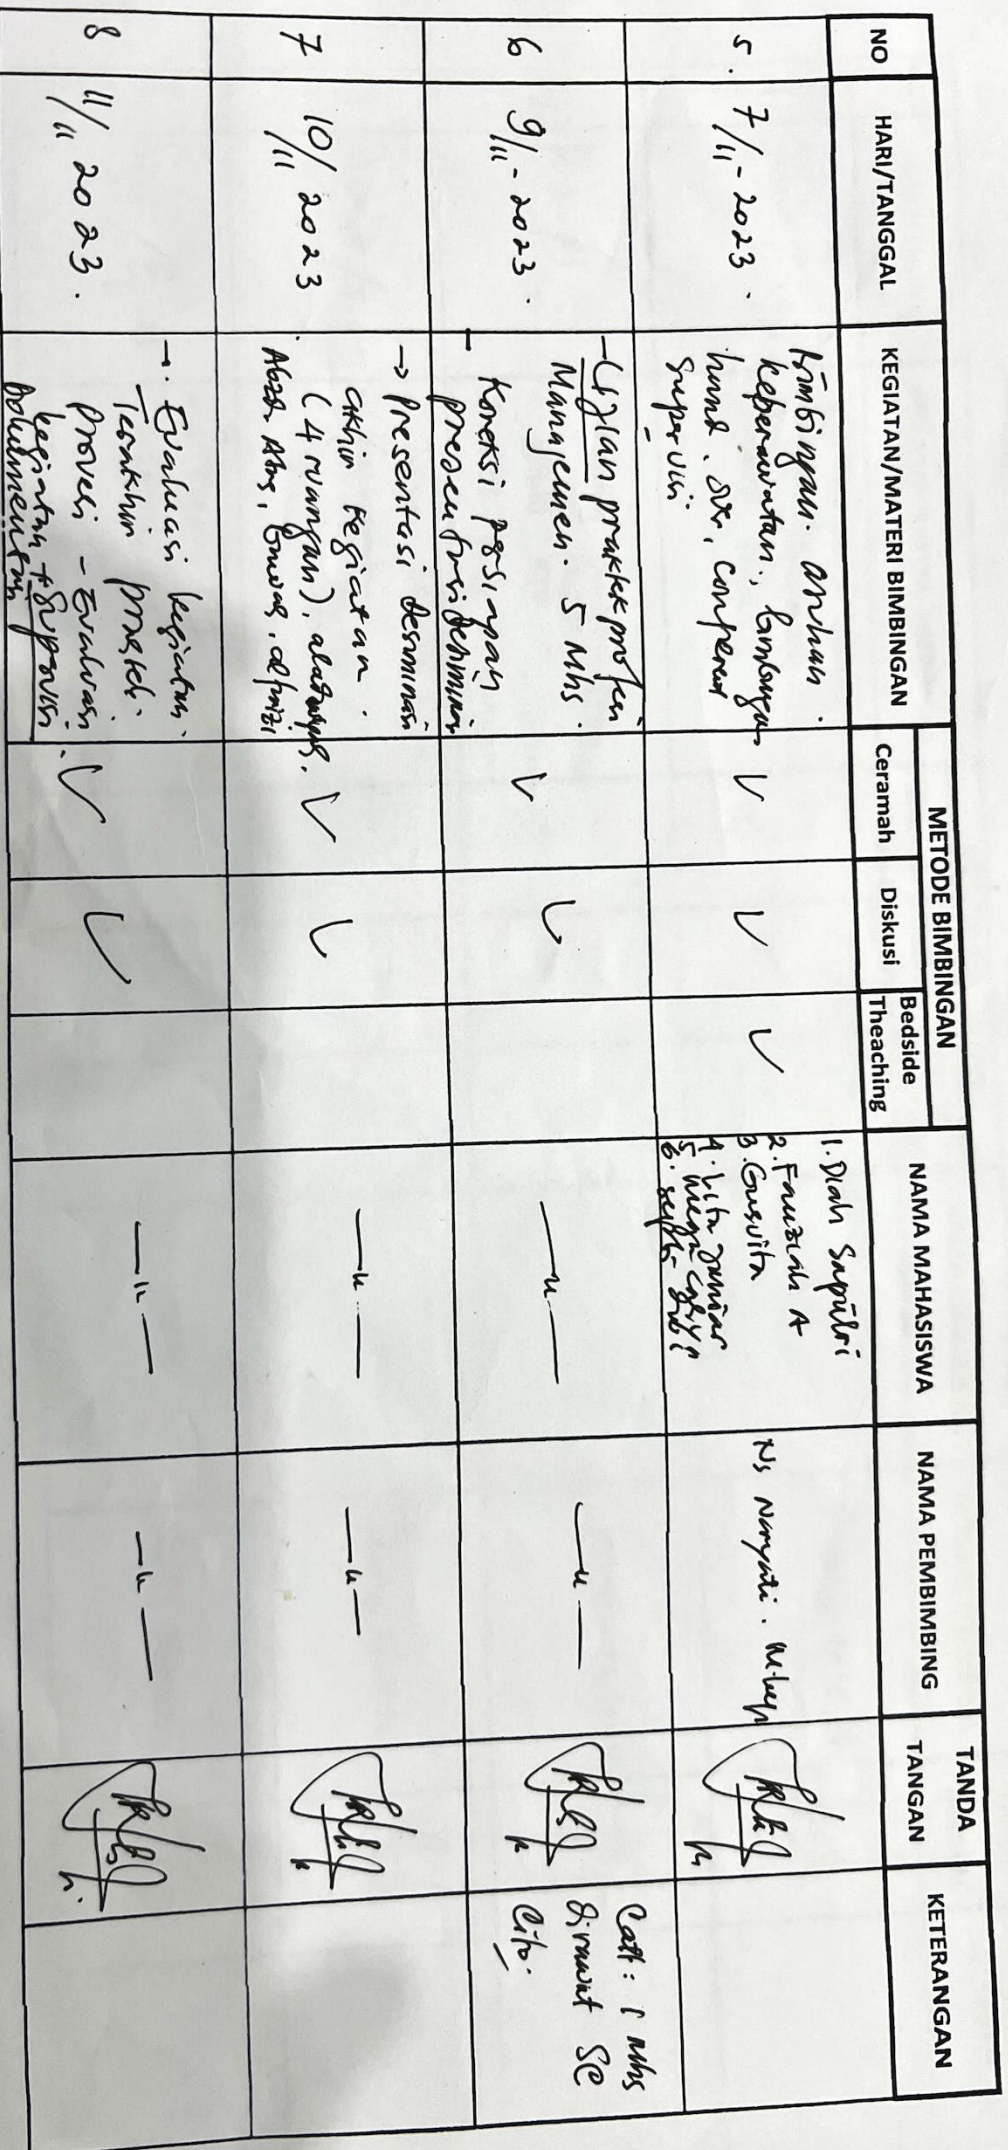 NO
HARI/TANGGAL
KEGIATAN/MATERI BIMBINGAN
METODE BIMBINGAN
Ceramah
Diskusi
Bedside
Theaching
NAMA MAHASISWA
NAMA PEMBIMBING
TANDA
TANGAN
KETERANGAN
5.
7/11-2023.
Bimbingan. asuhan
keperawatan., bimbingan
conferen
supervisi
V
V
V
1. Diah Saputri
2. Fauziah A
3. Gusvita
4. Vita
5. Mega
6. Septi
Ns Naryati. M.kep
6
9/11-2023.
- Ujian praktek profesi
Manajemen. 5 Mhs.
- Koreksi persiapan
presentasi desminasi
V
V
— u —
— u —
Catt: 1 Mhs
dirawat SC
Cito.
7
10/11 2023
→ presentasi desminasi
akhir kegiatan.
(4 ruangan),
V
V
— u —
— u —
8
11/11 2023.
-. Evaluasi kegiatan.
Terakhir praktek.
profesi - Evaluasi
kegiatan + Supervisi.
Dokumentasi
V
V
— u —
— u —